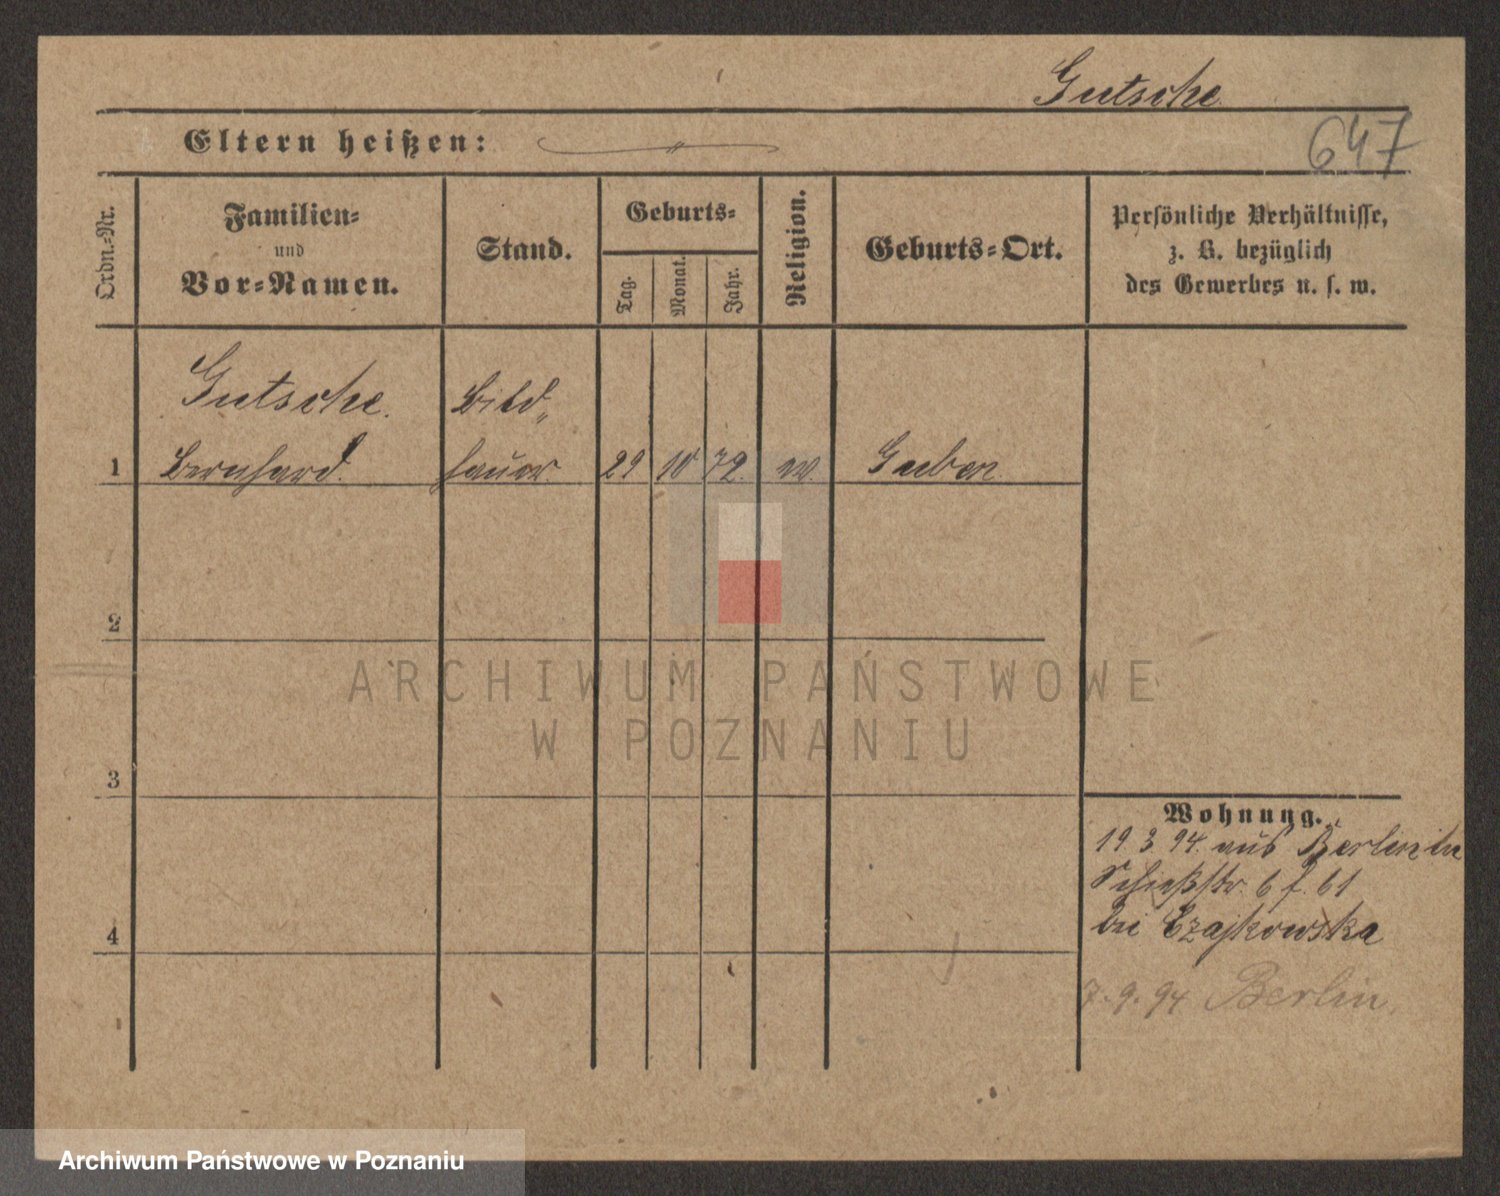 Gutsche
Eltern heißen:
647
Ordn.-Nr.
Familien-
und
Vor-Namen.
Stand.
Geburts-
Tag.
Monat.
Jahr.
Religion.
Geburts-Ort.
Persönliche Verhältnisse,
z. B. bezüglich
des Gewerbes u. s. w.
Gutsche.
Bild„
1 Bernhard. hauer. 29 10 72. Guben
2
3
4
Wohnung.
19. 3. 94. aus Berlin in
Schießstr. 6 f. 61
bei Czajkowska
7. 9. 94 Berlin.
ARCHIWUM PAŃSTWOWE
W POZNANIU
Archiwum Państwowe w Poznaniu